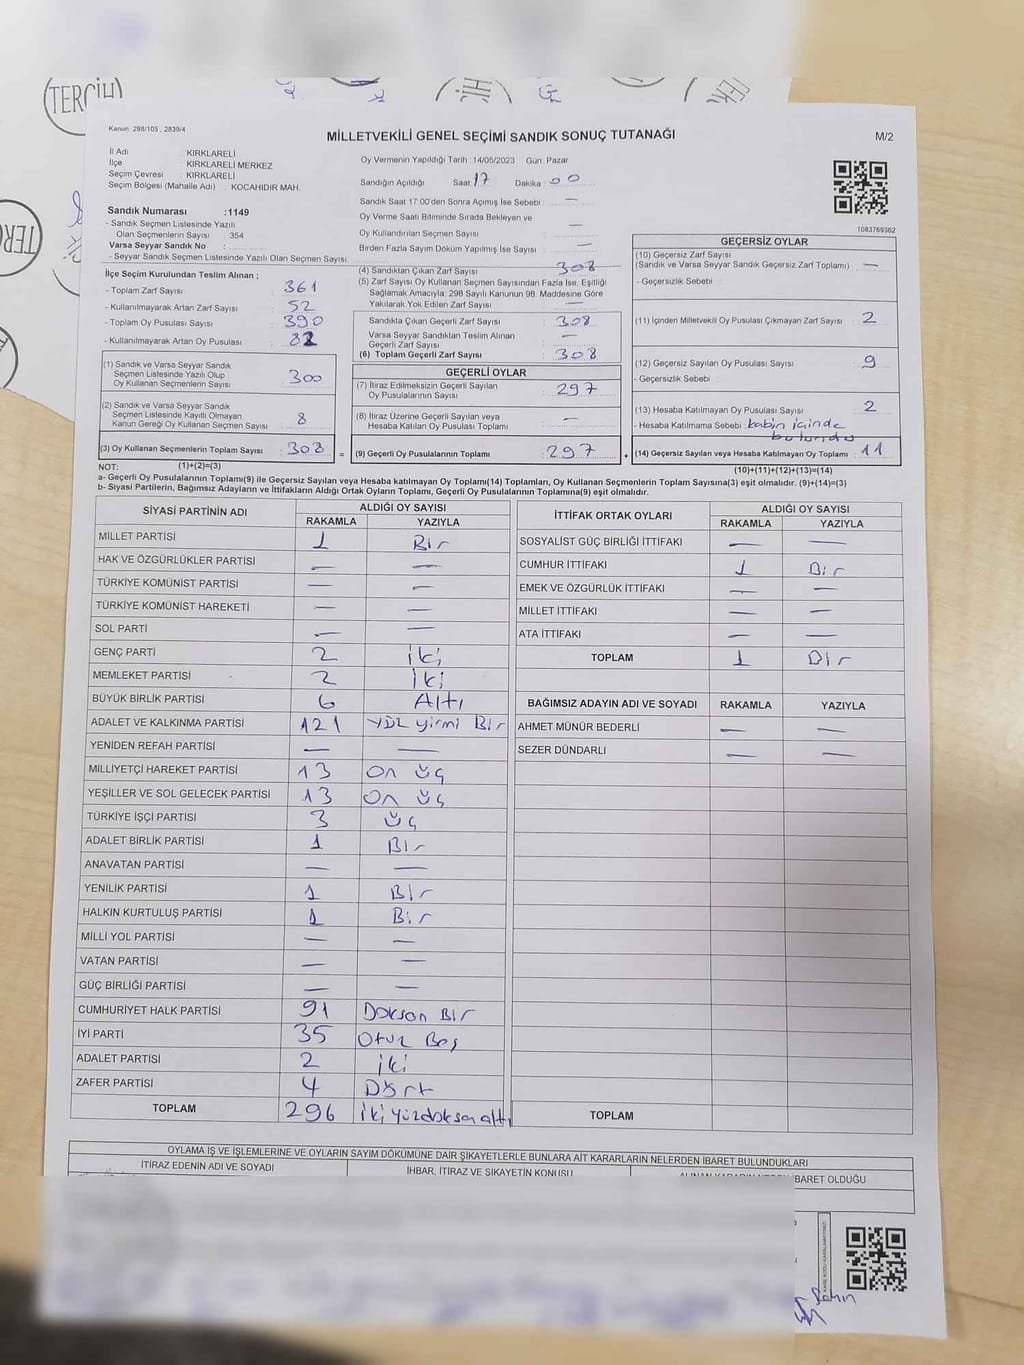 TERCİH
Kanun: 298/105 , 2839/4
MİLLETVEKİLİ GENEL SEÇİMİ SANDIK SONUÇ TUTANAĞI
M/2
İl Adı : KIRKLARELİ
İlçe : KIRKLARELİ MERKEZ
Seçim Çevresi : KIRKLARELİ
Seçim Bölgesi (Mahalle Adı) : KOCAHIDIR MAH.
Sandık Numarası :1149
- Sandık Seçmen Listesinde Yazılı
Olan Seçmenlerin Sayısı : 354
Varsa Seyyar Sandık No :
- Seyyar Sandık Seçmen Listesinde Yazılı Olan Seçmen Sayısı:
İlçe Seçim Kurulundan Teslim Alınan ;
- Toplam Zarf Sayısı : 361
- Kullanılmayarak Artan Zarf Sayısı : 52
- Toplam Oy Pusulası Sayısı : 390
- Kullanılmayarak Artan Oy Pusulası :
(1) Sandık ve Varsa Seyyar Sandık
Seçmen Listesinde Yazılı Olup
Oy Kullanan Seçmenlerin Sayısı : 300
(2) Sandık ve Varsa Seyyar Sandık
Seçmen Listesinde Kayıtlı Olmayan
Kanun Gereği Oy Kullanan Seçmen Sayısı : 8
(3) Oy Kullanan Seçmenlerin Toplam Sayısı : 308
Oy Vermenin Yapıldığı Tarih : 14/05/2023 Gün: Pazar
Sandığın Açıldığı Saat: 17 Dakika : 00
Sandık Saat 17:00'den Sonra Açımış İse Sebebi : —
Oy Verme Saati Bitiminde Sırada Bekleyen ve
Oy Kullandırılan Seçmen Sayısı : —
Birden Fazla Sayım Döküm Yapılmış İse Sayısı : —
(4) Sandıktan Çıkan Zarf Sayısı : 308
(5) Zarf Sayısı Oy Kullanan Seçmen Sayısından Fazla İse, Eşitliği
Sağlamak Amacıyla; 298 Sayılı Kanunun 98. Maddesine Göre
Yakılarak Yok Edilen Zarf Sayısı : —
Sandıkta Çıkan Geçerli Zarf Sayısı : 308
Varsa Seyyar Sandıktan Teslim Alınan
Geçerli Zarf Sayısı : —
(6) Toplam Geçerli Zarf Sayısı : 308
GEÇERLİ OYLAR
(7) İtiraz Edilmeksizin Geçerli Sayılan
Oy Pusulalarının Sayısı : 297
(8) İtiraz Üzerine Geçerli Sayılan veya
Hesaba Katılan Oy Pusulası Toplamı : —
= (9) Geçerli Oy Pusulalarının Toplamı : 297
1083769362
GEÇERSİZ OYLAR
(10) Geçersiz Zarf Sayısı
(Sandık ve Varsa Seyyar Sandık Geçersiz Zarf Toplamı) : —
- Geçersizlik Sebebi :
(11) İçinden Milletvekili Oy Pusulası Çıkmayan Zarf Sayısı : 2
(12) Geçersiz Sayılan Oy Pusulası Sayısı : 9
- Geçersizlik Sebebi :
(13) Hesaba Katılmayan Oy Pusulası Sayısı : 2
- Hesaba Katılmama Sebebi : kabin içinde
bulundu
+ (14) Geçersiz Sayılan veya Hesaba Katılmayan Oy Toplamı : 11
NOT: (1)+(2)=(3) (10)+(11)+(12)+(13)=(14)
a- Geçerli Oy Pusulalarının Toplamı(9) ile Geçersiz Sayılan veya Hesaba katılmayan Oy Toplamı(14) Toplamları, Oy Kullanan Seçmenlerin Toplam Sayısına(3) eşit olmalıdır. (9)+(14)=(3)
b- Siyasi Partilerin, Bağımsız Adayların ve İttifakların Aldığı Ortak Oyların Toplamı, Geçerli Oy Pusulalarının Toplamına(9) eşit olmalıdır.
SİYASİ PARTİNİN ADI ALDIĞI OY SAYISI
RAKAMLA YAZIYLA
MİLLET PARTİSİ 1 Bir
HAK VE ÖZGÜRLÜKLER PARTİSİ — —
TÜRKİYE KOMÜNİST PARTİSİ — —
TÜRKİYE KOMÜNİST HAREKETİ — —
SOL PARTİ — —
GENÇ PARTİ 2 iki
MEMLEKET PARTİSİ 2 iki
BÜYÜK BİRLİK PARTİSİ 6 Altı
ADALET VE KALKINMA PARTİSİ 121 YÜZ yirmi Bir
YENİDEN REFAH PARTİSİ — —
MİLLİYETÇİ HAREKET PARTİSİ 13 On üç
YEŞİLLER VE SOL GELECEK PARTİSİ 13 On üç
TÜRKİYE İŞÇİ PARTİSİ 3 üç
ADALET BİRLİK PARTİSİ 1 Bir
ANAVATAN PARTİSİ — —
YENİLİK PARTİSİ 1 Bir
HALKIN KURTULUŞ PARTİSİ 1 Bir
MİLLİ YOL PARTİSİ — —
VATAN PARTİSİ — —
GÜÇ BİRLİĞİ PARTİSİ — —
CUMHURİYET HALK PARTİSİ 91 Doksan Bir
İYİ PARTİ 35 Otuz Beş
ADALET PARTİSİ 2 iki
ZAFER PARTİSİ 4 Dört
TOPLAM 296 İki yüz doksan altı
İTTİFAK ORTAK OYLARI ALDIĞI OY SAYISI
RAKAMLA YAZIYLA
SOSYALİST GÜÇ BİRLİĞİ İTTİFAKI — —
CUMHUR İTTİFAKI 1 Bir
EMEK VE ÖZGÜRLÜK İTTİFAKI — —
MİLLET İTTİFAKI — —
ATA İTTİFAKI — —
TOPLAM 1 Bir
BAĞIMSIZ ADAYIN ADI VE SOYADI RAKAMLA YAZIYLA
AHMET MÜNÜR BEDERLİ — —
SEZER DÜNDARLI — —
TOPLAM
OYLAMA İŞ VE İŞLEMLERİNE VE OYLARIN SAYIM DÖKÜMÜNE DAİR ŞİKAYETLERLE BUNLARA AİT KARARLARIN NELERDEN İBARET BULUNDUKLARI
İTİRAZ EDENİN ADI VE SOYADI İHBAR, İTİRAZ VE ŞİKAYETİN KONUSU ALINAN KARARIN NEDEN İBARET OLDUĞU